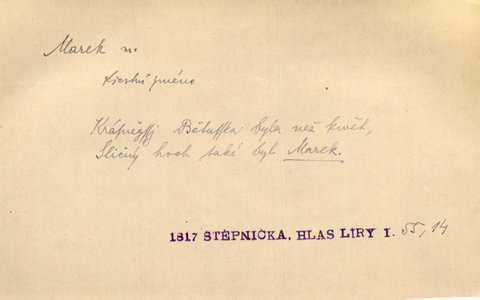 Marek m.
křestní jméno
Krápněgssj Bětusska byla než kwět,
Sličný hoch také byl Marek.
1817 ŠTĚPNIČKA, HLAS LÍRY I. 55, 14